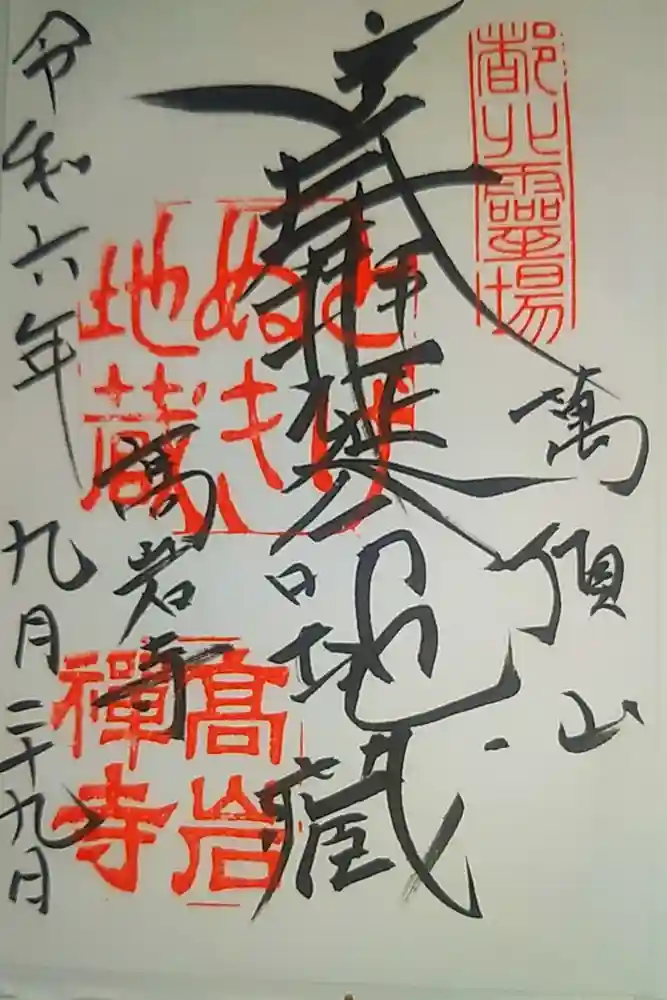 都八靈場
萬頂山
地藏
とげ
ぬき
地蔵
高岩寺
髙岩
禪寺
令和六年九月二十九日